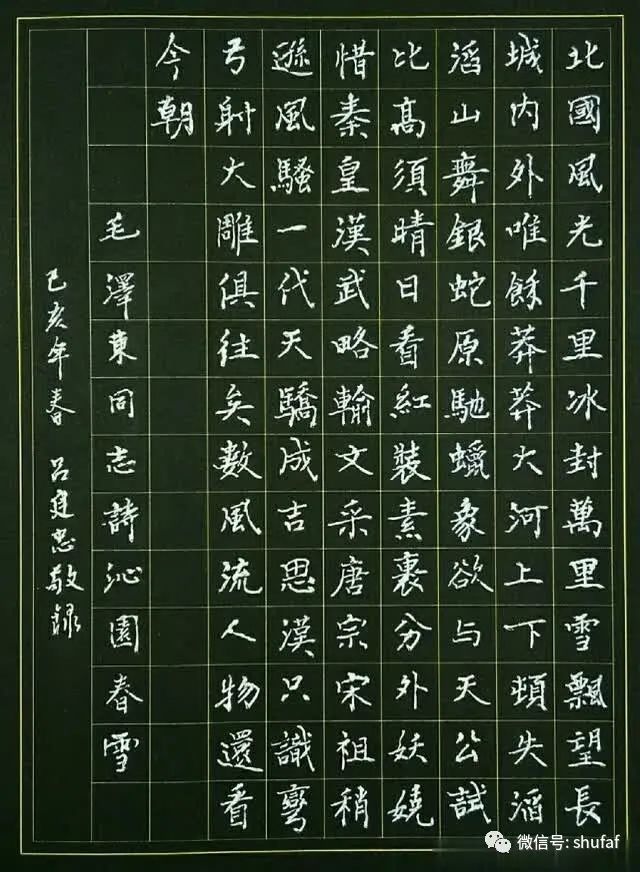 北國風光千里冰封萬里雪飄望長
城内外唯餘莽莽大河上下頓失滔
滔山舞銀蛇原馳蠟象欲与天公試
比高須晴日看紅裝素裹分外妖嬈
惜秦皇漢武略輸文采唐宗宋祖稍
遜風騷一代天驕成吉思漢只識彎
弓射大雕俱往矣數風流人物還看
今朝
毛澤東同志詩沁園春雪
己亥年春 吕忠敬録
微信号: shufaf